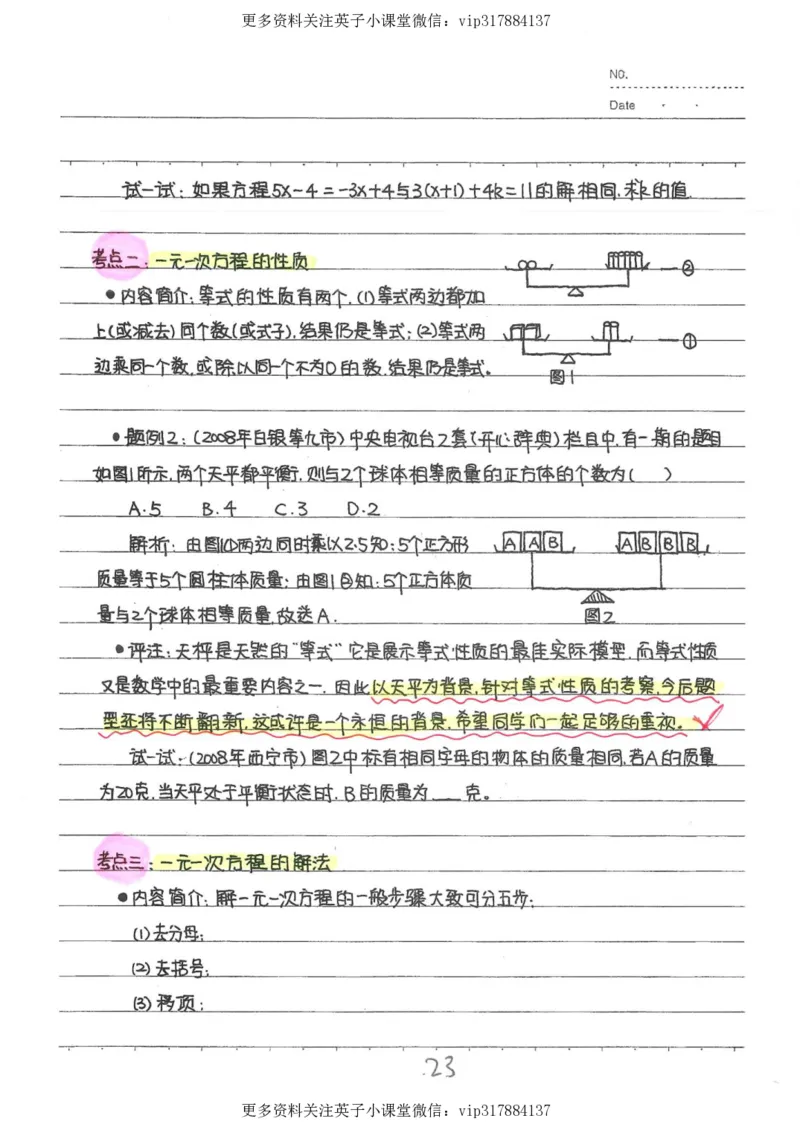 更多资料关注英子小课堂微信：vip317884137
NO.
Date
试一试：如果方程5x-4=-3x+4与3(x+1)+4k=11的解相同，求k的值.
考点二：一元一次方程的性质
●内容简介：等式的性质有两个，(1)等式两边都加
上(或减去)同个数(或式子)，结果仍是等式；(2)等式两
边乘同一个数，或除以同一个不为0的数，结果仍是等式。
②
①
图1
●题例2：(2008年白银等九市)中央电视台2套《开心辞典》栏目中，有一期的题目
如图1所示，两个天平都平衡，则与2个球体相等质量的正方体的个数为( )
A.5 B.4 C.3 D.2
解析：由图1①两边同时乘以2.5知：5个正方形
质量等于5个圆柱体质量；由图1②知：5个正方体质
量与2个球体相等质量，故选A.
A A B A B B B
图2
●评注：天枰是天然的“等式”它是展示等式性质的最佳实际模型，而等式性质
又是数学中的最重要内容之一.因此，以天平为背景，针对等式性质的考察，今后题
型还将不断翻新，这或许是一个永恒的背景，希望同学们一起足够的重视。
试一试：(2008年西宁市)图2中标有相同字母的物体的质量相同，若A的质量
为20克，当天平处于平衡状态时，B的质量为___克。
考点三：一元一次方程的解法
●内容简介：解一元一次方程的一般步骤大致可分五步：
(1)去分母；
(2)去括号；
(3)移项；
23
更多资料关注英子小课堂微信：vip317884137